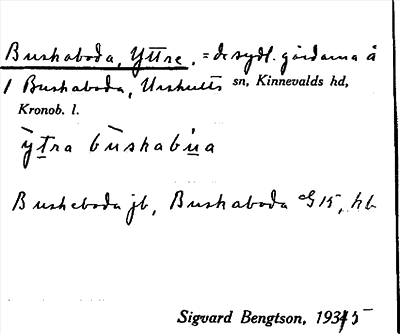 Bushaboda, Yttre, = de sydl. gårdarna å
1 Bushaboda, Urshults sn, Kinnevalds hd,
Kronob. l.
ỳt̲ra bùshabu̲a
Busheboda jb, Bushaboda GS 15, hb
Sigvard Bengtson, 1935